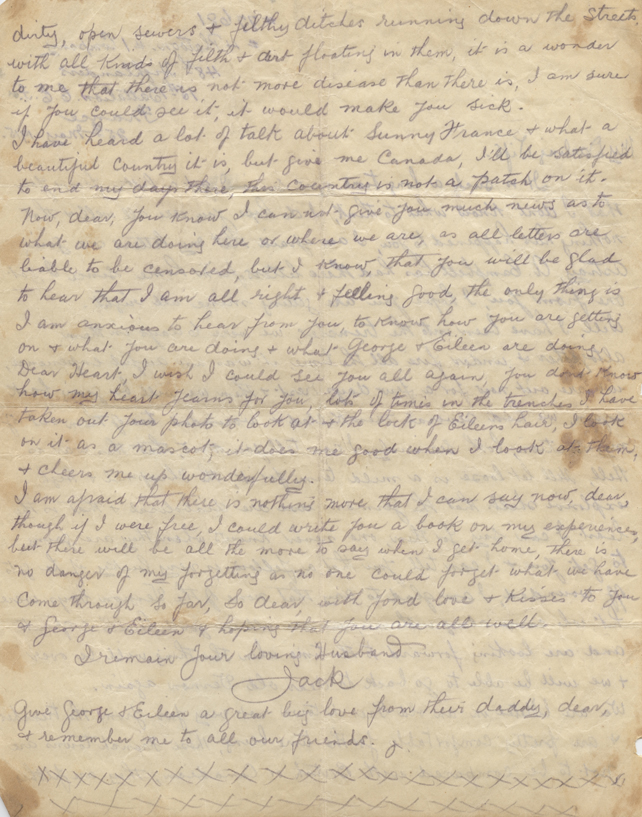 dirty, open sewers & filthy ditches running down the Streets,
with all Kinds of filth & dirt floating in them, it is a wonder
to me that there is not more disease than there is, I am sure
if you could see it, it would make you sick.
I have heard a lot of talk about Sunny France & what a
beautiful Country it is, but give me Canada, I'll be satisfied
to end my days there, this country is not a patch on it.
Now, dear, you know I can not give you much news as to
what we are doing here or where we are, as all letters are
liable to be censored, but I know, that you will be glad
to hear that I am all right & felling good, the only thing is
I am anxious to hear from you, to know how you are getting
on & what you are doing & what George & Eileen are doing.
Dear Heart, I wish I could see you all again, you dont Know
how my heart yearns for you, lots of times in the trenches I have
taken out your photo to look at & the lock of Eileens hair, I look
on it as a mascot, it does me good when I look at them,
& cheers me up wonderfully.
I am afraid that there is nothing more that I can say now, dear,
though if I were free, I could write you a book on my experiences,
but there will be all the more to say when I get home, there is
no danger of my forgetting as no one could forget what we have
come through so far, So dear, with fond love & Kisses to you
& George & Eileen & hoping that you are all well.
I remain your loving Husband
Jack
Give George & Eileen a great big love from their daddy, dear,
& remember me to all our friends. J
XXXXXXXXXXXXXXXXXXXXXXXXXXXX
XXXXXXXXXXXXXXXXXX